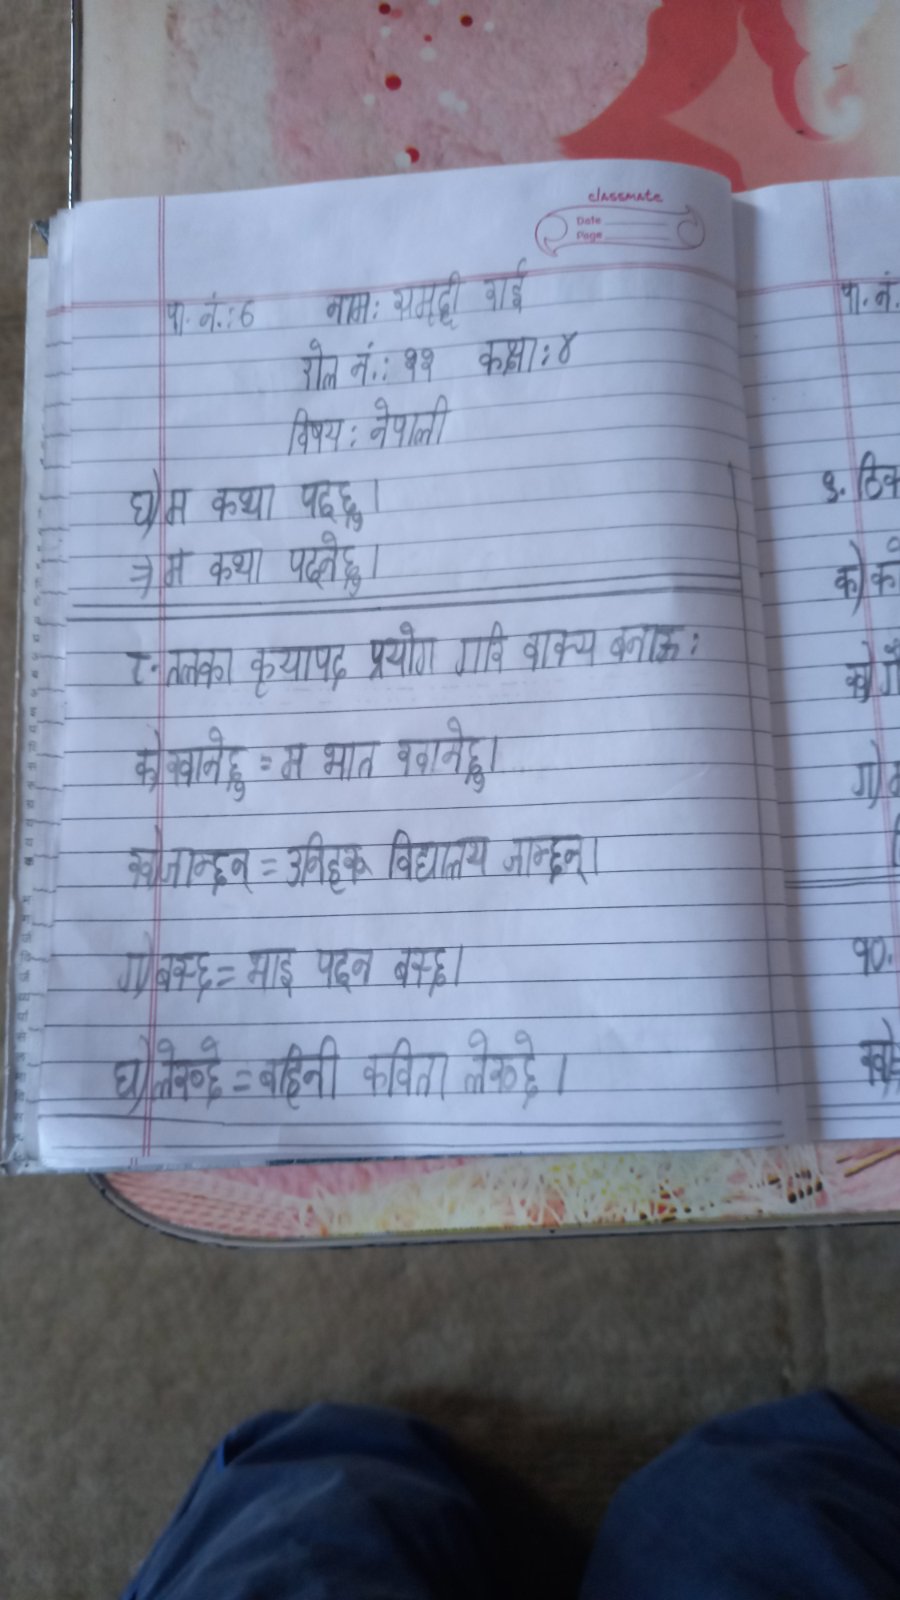 classmate
Date
Page
पा. नं.: 6 नाम: समृद्दी राई
रोल नं.: ११ कक्षा: ४
विषय: नेपाली
घ) म कथा पढ्छु।
⇒ म कथा पढ्नेछु।
८. तलका कृयापद प्रयोग गरि वाक्य बनाऊ:
क) खानेछु = म भात खानेछु।
ख) जान्छन् = उनिहरू विद्यालय जान्छन्।
ग) बस्छ = भाइ पढ्न बस्छ।
घ) लेख्छे = बहिनी कविता लेख्छे।
पा. नं.
९. ठिक
क)
ख)
ग)
१०.
ख)